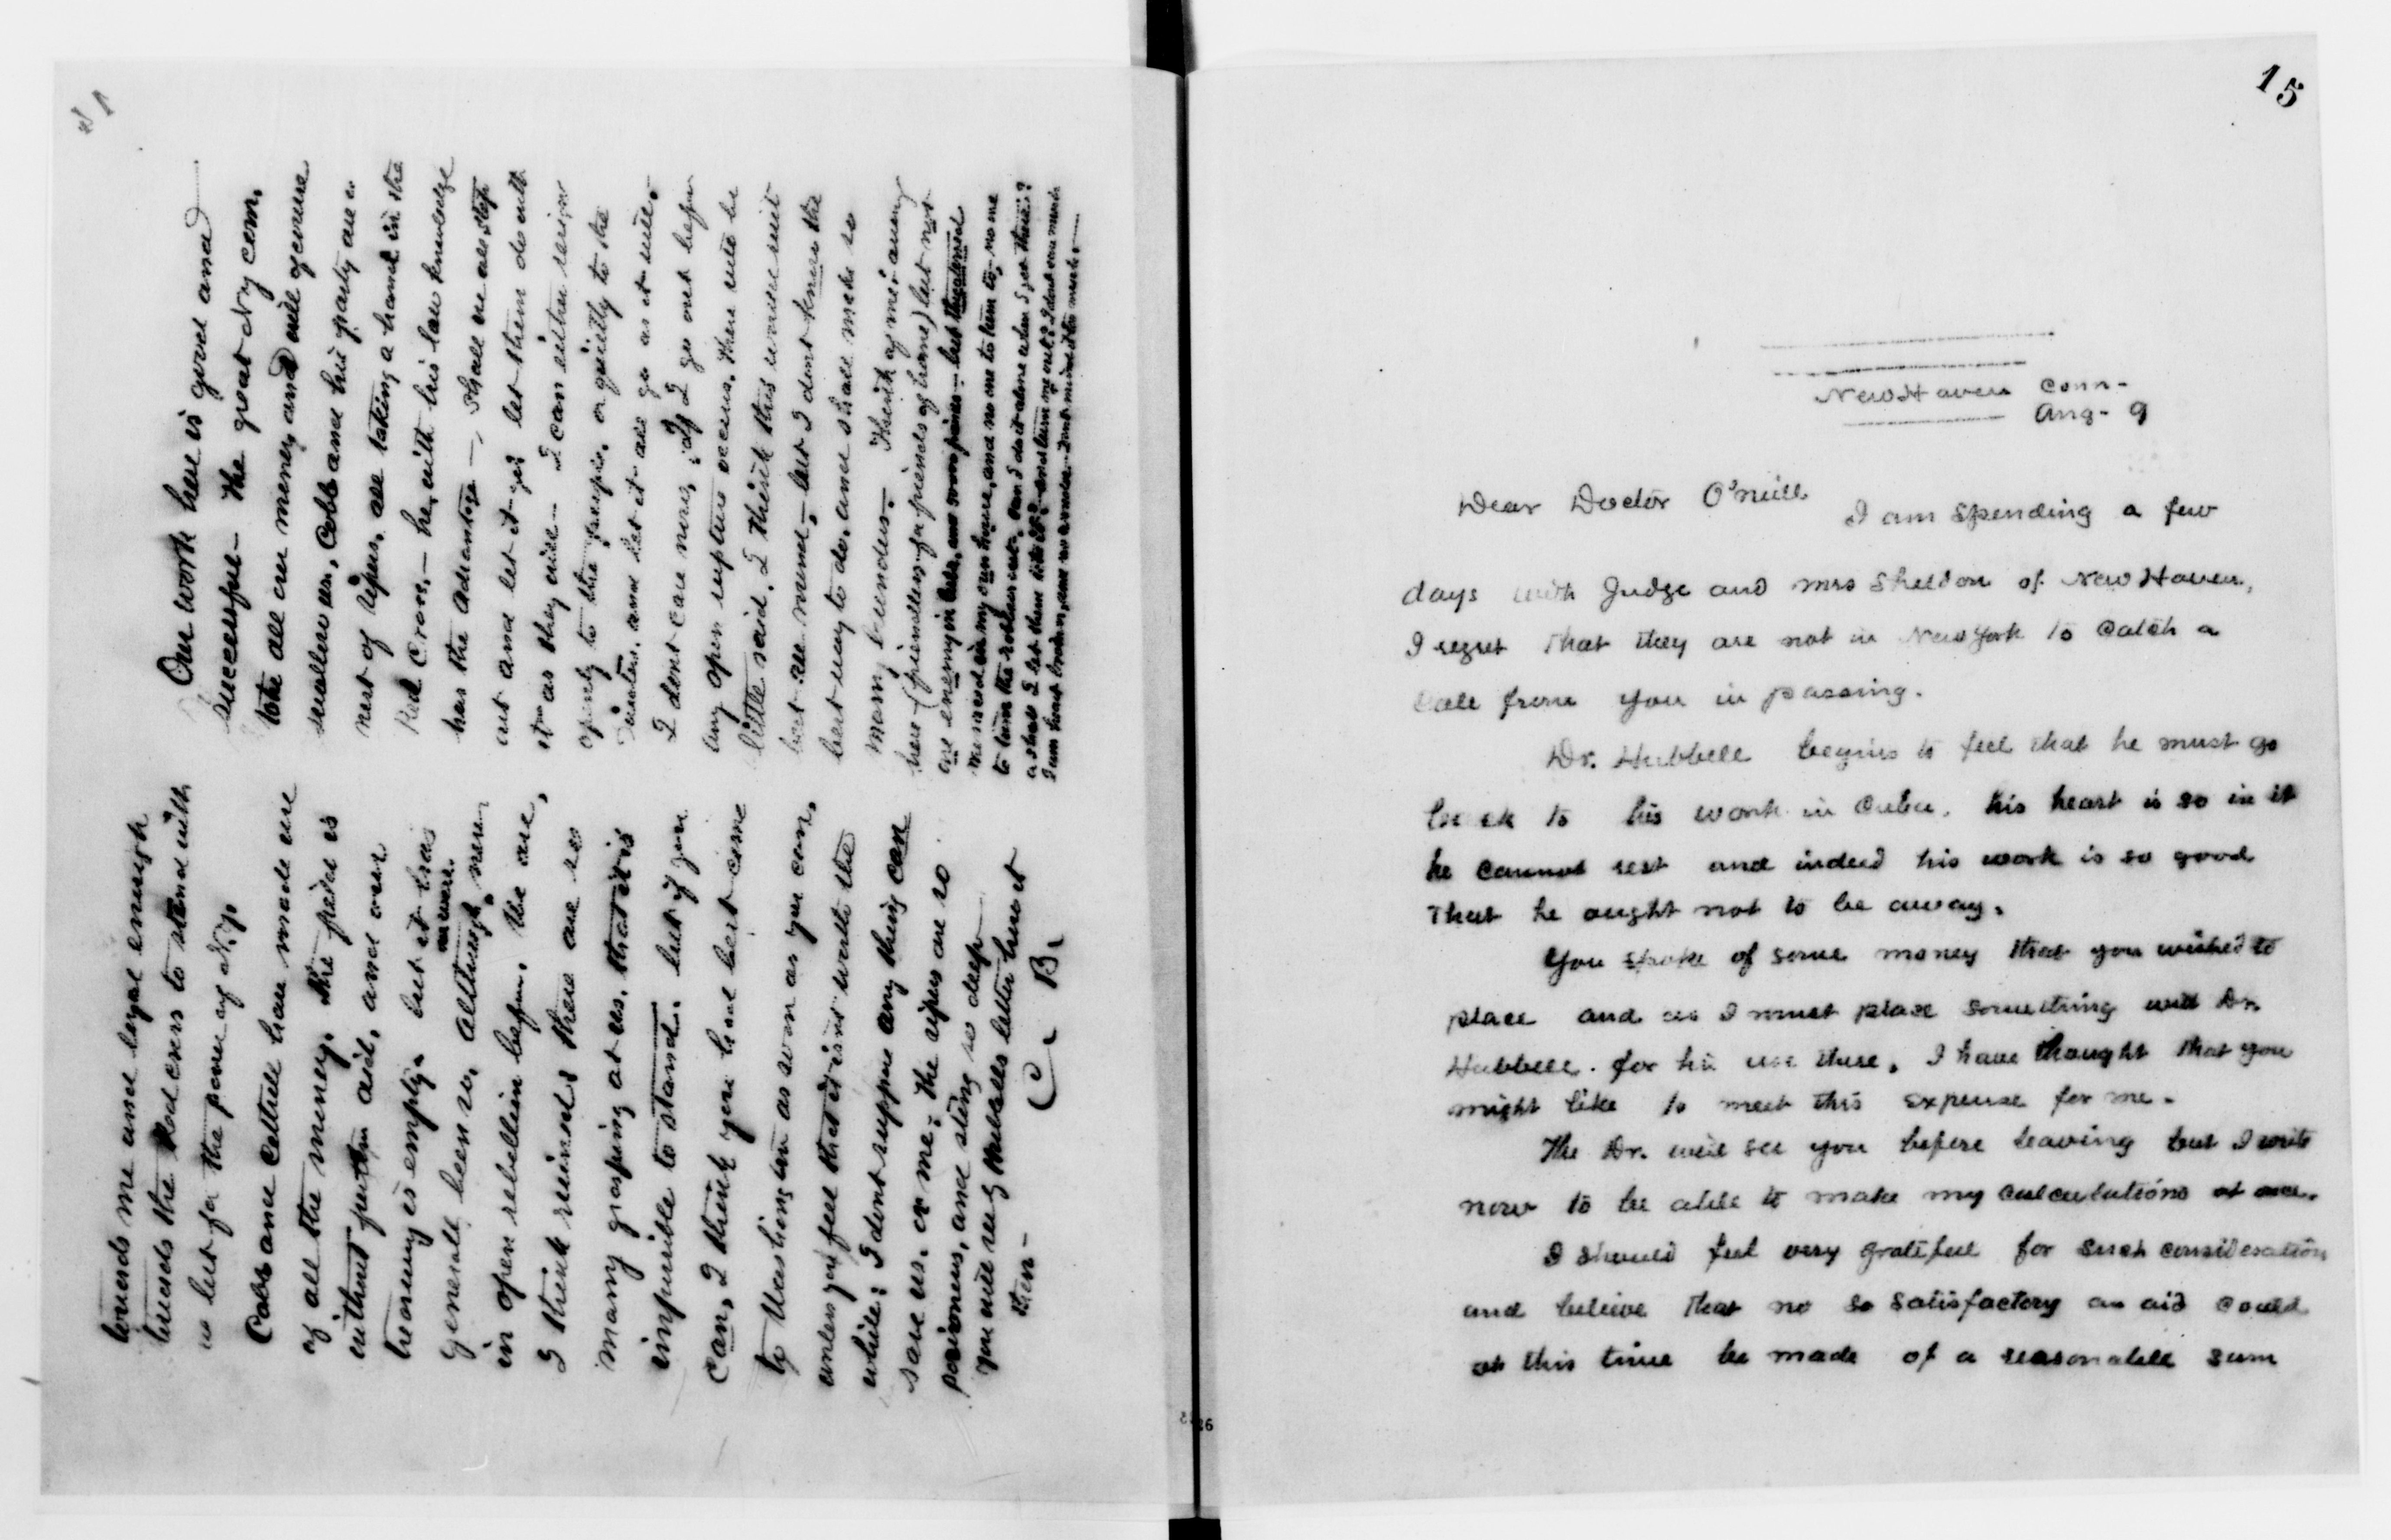 Our work here is good and
successful - The great Ny com.
take all our money and will of course
swallow us, Cobb and his party are a
nest of vipers, all taking a hand in the
Red Cross. - he, with his law knowledge
has the advantage -, shall we all step
out and let it go, let them do with
it as they will - I can either resign
openly to the people, or quietly to the
Directors, and let it all go as it will.
I dont care now, if I go out before
any open rupture occurs, there will be
little said. I think this would suit
best all round, - but I dont know the
best way to do, and shall make so
many blunders. - Think of me: among
here (friendless, for friends of home) but not
one enemy in Cuba, and some friends - but threatened
no one to turn to
I am heart broken, and no wonder. Dont mind it too much. -
towards me and loyal enough
towards the Red Cross to stand with
us but for the power of N.Y.
Cobb and Cottrell have made us
of all the money. The field is
without further aid, and our
treasury is empty. but it has
generally been so, although never
in open rebellion before. We are,
I think ruined, there are so
many grasping at us, that it is
impossible to stand. but if you
can, I think you had best come
to Washington as soon as you can,
unless you feel that it is not worth the
while: I dont suppose any thing can
save us, or me: the vipers are so
poisonous, and sting so deep
you will see by Hubbells letter how it
then -
C. B.
15
New Haven Conn -
Aug - 9
Dear Doctor O'neill
I am spending a few
days with Judge and Mrs Sheldon of New Haven,
I regret that they are not in New York to catch a
call from you in passing.
Dr. Hubbell begins to feel that he must go
back to his work in Cuba. his heart is so in it
he cannot rest and indeed his work is so good
that he ought not to be away.
You spoke of some money that you wished to
place and as I must place something with Dr.
Hubbell. for his use there, I have thought that you
might like to meet this expense for me.
The Dr. will see you before leaving but I write
now to be able to make my calculations at once.
I should feel very grateful for such consideration
and believe that no so satisfactory an aid could
at this time be made of a reasonable sum